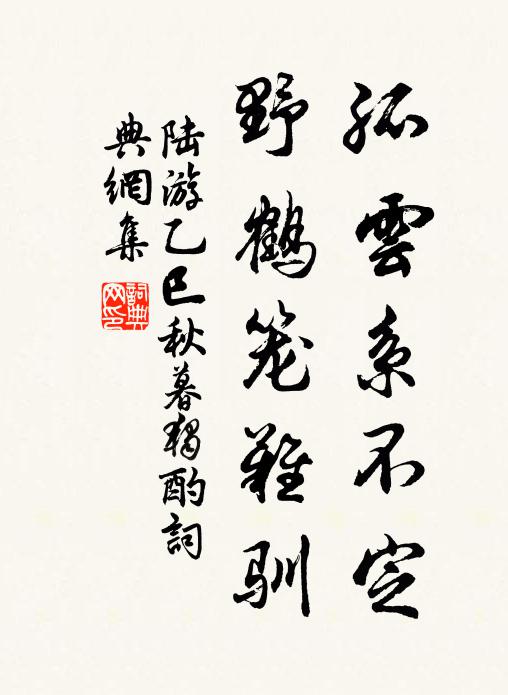 孤雲系不定
野鶴笼難馴
陆游乙巳秋暮獨酌詞
典網集
詞典网印